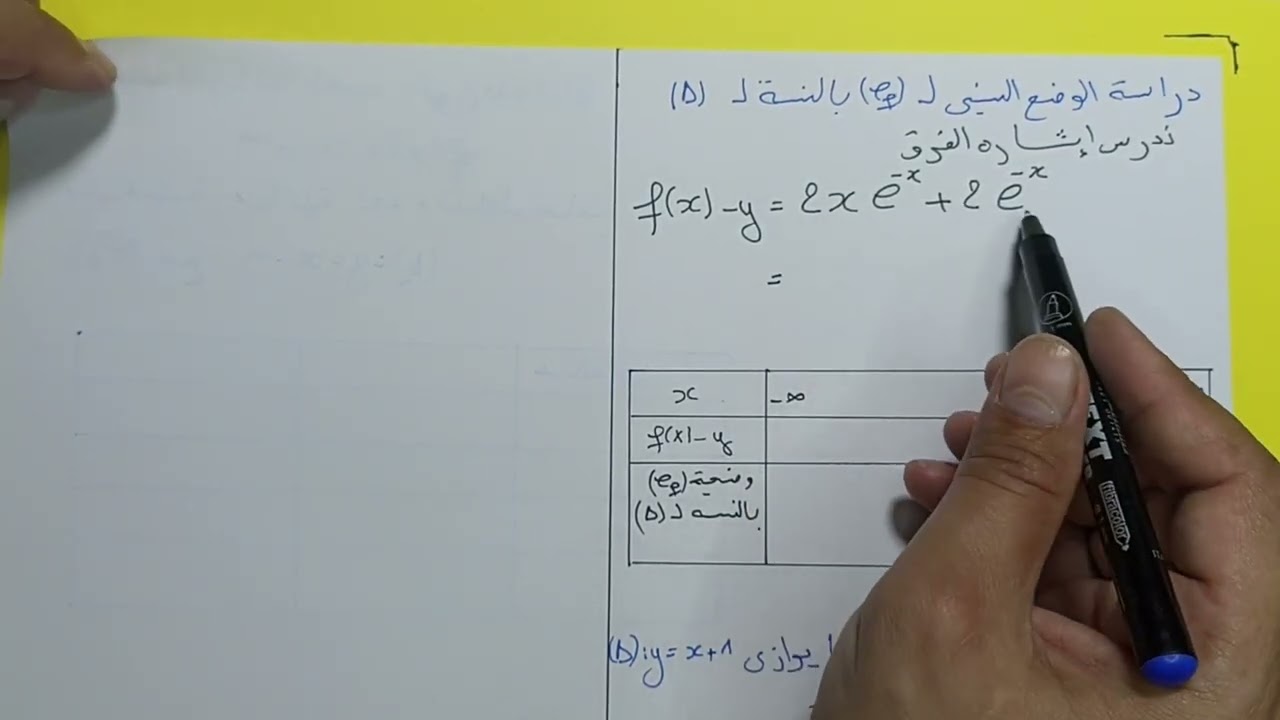 دراسة الوضع النسبي لـ (Cf) بالنسبة لـ (Δ)
ندرس إشارة الفرق
f(x) - y = 2x e^-x + 2 e^-x
=
x -∞
f(x) - y
وضعية (Cf)
بالنسبة لـ (Δ)
يوازي (Δ): y = x + 1
fibracolor